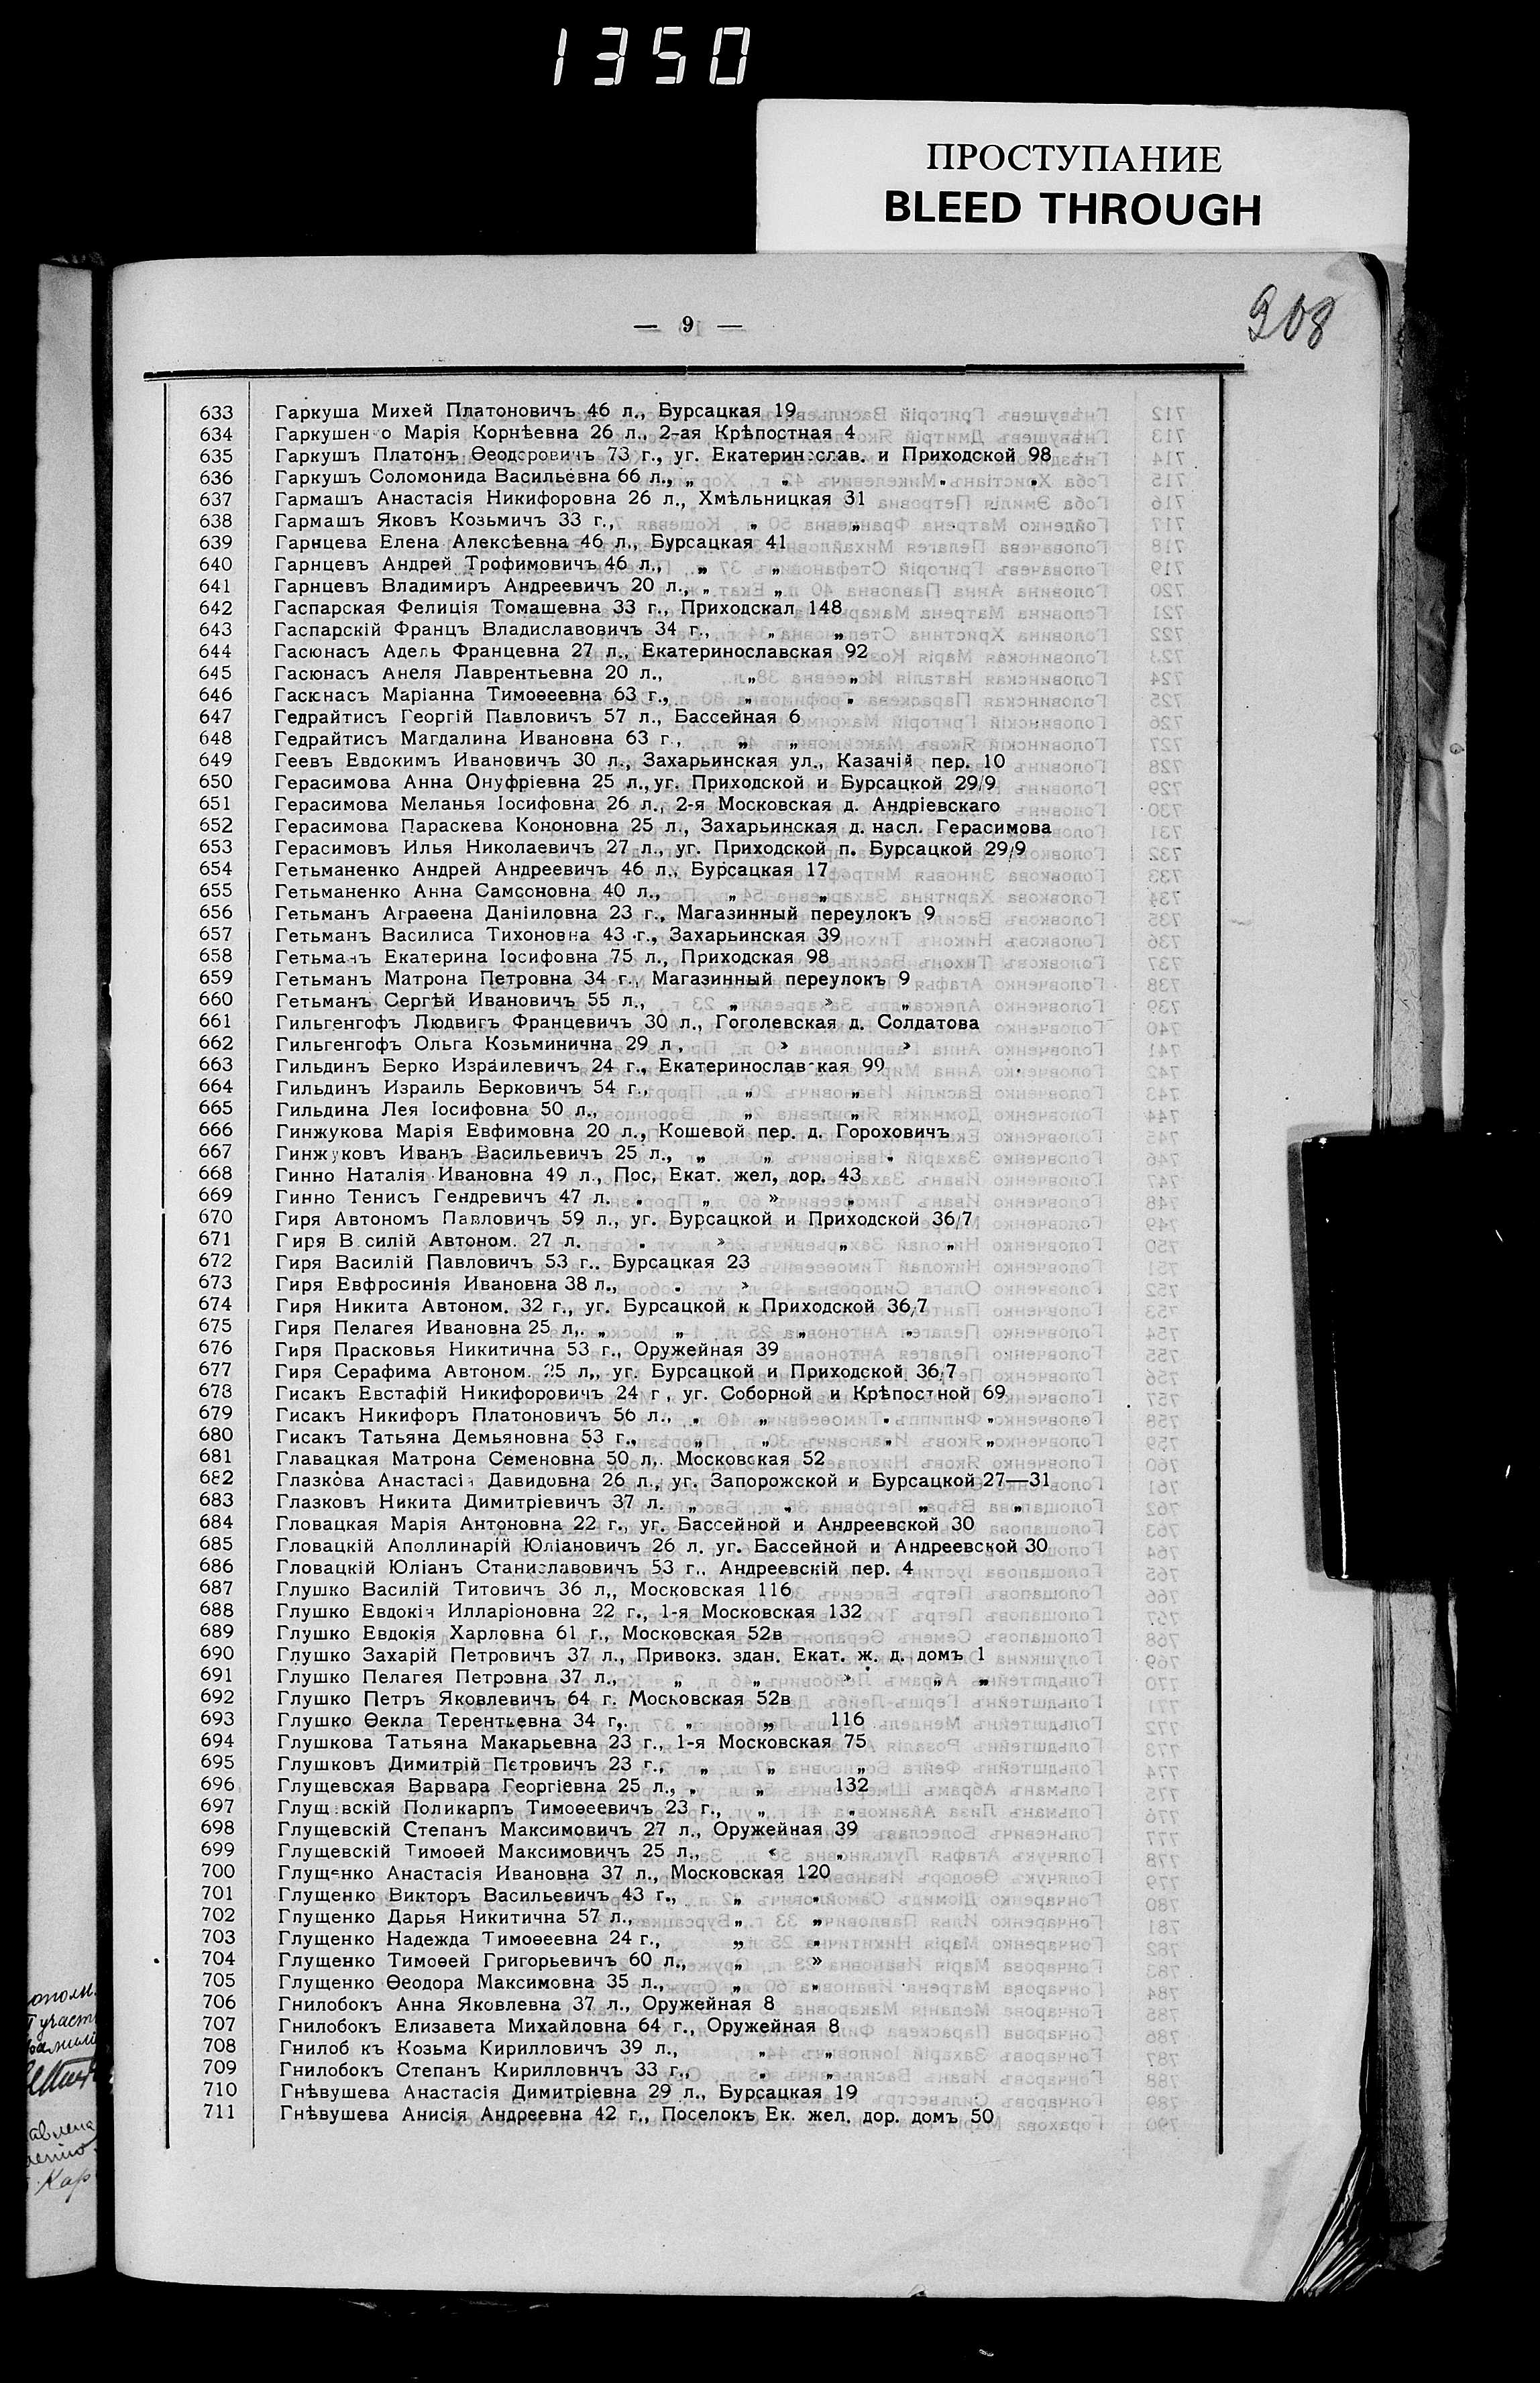 1350
ПРОСТУПАНИЕ
BLEED THROUGH
— 9 —
908
633 Гаркуша Михей Платоновичъ 46 л., Бурсацкая 19
634 Гаркушен о Марія Корнѣевна 26 л., 2-ая Крѣпостная 4
635 Гаркушъ Платонъ Ѳеодоровичъ 73 г., уг. Екатеринослав. и Приходской 98
636 Гаркушъ Соломонида Васильевна 66 л., „ „ „ „
637 Гармашъ Анастасія Никифоровна 26 л., Хмѣльницкая 31
638 Гармашъ Яковъ Козьмичъ 33 г., „ „
639 Гарнцева Елена Алексѣевна 46 л., Бурсацкая 41
640 Гарнцевъ Андрей Трофимовичъ 46 л., „ „
641 Гарнцевъ Владимиръ Андреевичъ 20 л., „ „
642 Гаспарская Фелиція Томашевна 33 г., Приходскал 148
643 Гаспарскій Францъ Владиславовичъ 34 г., „ „
644 Гасюнасъ Адель Францевна 27 л., Екатеринославская 92
645 Гасюнасъ Анеля Лаврентьевна 20 л., „ „
646 Гасюнасъ Маріанна Тимоѳеевна 63 г., „ „
647 Гедрайтисъ Георгій Павловичъ 57 л., Бассейная 6
648 Гедрайтисъ Магдалина Ивановна 63 г., „ „
649 Геевъ Евдокимъ Ивановичъ 30 л., Захарьинская ул., Казачій пер. 10
650 Герасимова Анна Онуфріевна 25 л., уг. Приходской и Бурсацкой 29/9
651 Герасимова Меланья Іосифовна 26 л., 2-я Московская д. Андріевскаго
652 Герасимова Параскева Кононовна 25 л., Захарьинская д. насл. Герасимова
653 Герасимовъ Илья Николаевичъ 27 л., уг. Приходской п. Бурсацкой 29/9
654 Гетьманенко Андрей Андреевичъ 46 л., Бурсацкая 17
655 Гетьманенко Анна Самсоновна 40 л., „ „
656 Гетьманъ Аграѳена Даніиловна 23 г., Магазинный переулокъ 9
657 Гетьманъ Василиса Тихоновна 43 г., Захарьинская 39
658 Гетьманъ Екатерина Іосифовна 75 л., Приходская 98
659 Гетьманъ Матрона Петровна 34 г., Магазинный переулокъ 9
660 Гетьманъ Сергѣй Ивановичъ 55 л., „ » „
661 Гильгенгофъ Людвигъ Францевичъ 30 л., Гоголевская д. Солдатова
662 Гильгенгофъ Ольга Козьминична 29 л , » »
663 Гильдинъ Берко Израилевичъ 24 г., Екатеринослав кая 99
664 Гильдинъ Израиль Берковичъ 54 г., „ „
665 Гильдина Лея Іосифовна 50 л., „ „
666 Гинжукова Марія Евфимовна 20 л., Кошевой пер. д. Гороховичъ
667 Гинжуковъ Иванъ Васильевичъ 25 л., „ „ „
668 Гинно Наталія Ивановна 49 л., Пос, Екат. жел, дор. 43
669 Гинно Тенисъ Гендревичъ 47 л. „ „ » „
670 Гиря Автономъ Павловичъ 59 л., уг. Бурсацкой и Приходской 36/7
671 Гиря В силій Автоном. 27 л. „ » „ „
672 Гиря Василій Павловичъ 53 г.. Бурсацкая 23
673 Гиря Евфросинія Ивановна 38 л., „ »
674 Гиря Никита Автоном. 32 г., уг. Бурсацкой к Приходской 36/7
675 Гиря Пелагея Ивановна 25 л,. „ „ „ „
676 Гиря Прасковья Никитична 53 г., Оружейная 39
677 Гиря Серафима Автоном. 25 л,, уг. Бурсацкой и Приходской 36/7
678 Гисакъ Евстафій Никифоровичъ 24 г , уг. Соборной и Крѣпостной 69
679 Гисакъ Никифоръ Платоновичъ 56 л., „ „ „ „
680 Гисакъ Татьяна Демьяновна 53 г., „ „ „ „
681 Главацкая Матрона Семеновна 50 л,. Московская 52
682 Глазкова Анастасія Давидовна 26 л., уг. Запорожской и Бурсацкой 27—31
683 Глазковъ Никита Димитріевичъ 37 л. „ „ „ „
684 Гловацкая Марія Антоновна 22 г., уг. Бассейной и Андреевской 30
685 Гловацкій Аполлинарій Юліановичъ 26 л. уг. Бассейной и Андреевской 30
686 Гловацкій Юліанъ Станиславовичъ 53 г.. Андреевскій пер. 4
687 Глушко Василій Титовичъ 36 л,, Московская 116
688 Глушко Евдокія Илларіоновна 22 г., 1-я Московская 132
689 Глушко Евдокія Харловна 61 г., Московская 52в
690 Глушко Захарій Петровичъ 37 л., Привокз. здан. Екат. ж. д. домъ 1
691 Глушко Пелагея Петровна 37 л., „ „ » „ „
692 Глушко Петръ Яковлевичъ 64 г. Московская 52в
693 Глушко Ѳекла Терентьевна 34 г,. „ „ 116
694 Глушкова Татьяна Макарьевна 23 г., 1-я Московская 75
695 Глушковъ Димитрій Петровичъ 23 г., „ „ „
696 Глущевская Варвара Георгіевна 25 л., „ „ 132
697 Глущ вскій Поликарпъ Тимоѳеевичъ 23 г., „ „
698 Глущевскій Степанъ Максимовичъ 27 л., Оружейная 39
699 Глущевскій Тимоѳей Максимовичъ 25 л., « „
700 Глущенко Анастасія Ивановна 37 л., Московская 120
701 Глущенко Викторъ Васильевичъ 43 г., „ „
702 Глущенко Дарья Никитична 57 л., „ „
703 Глущенко Надежда Тимоѳеевна 24 г., „ „
704 Глущенко Тимоѳей Григорьевичъ 60 л., „ »
705 Глущенко Ѳеодора Максимовна 35 л., „ „
706 Гнилобокъ Анна Яковлевна 37 л., Оружейная 8
707 Гнилобокъ Елизавета Михайловна 64 г., Оружейная 8
708 Гнилоб къ Козьма Кирилловичъ 39 л., „ „
709 Гнилобокъ Степанъ Кирилловичъ 33 г., „ „
710 Гнѣвушева Анастасія Димитріевна 29 л., Бурсацкая 19
711 Гнѣвушева Анисія Андреевна 42 г., Поселокъ Ек. жел. дор. домъ 50